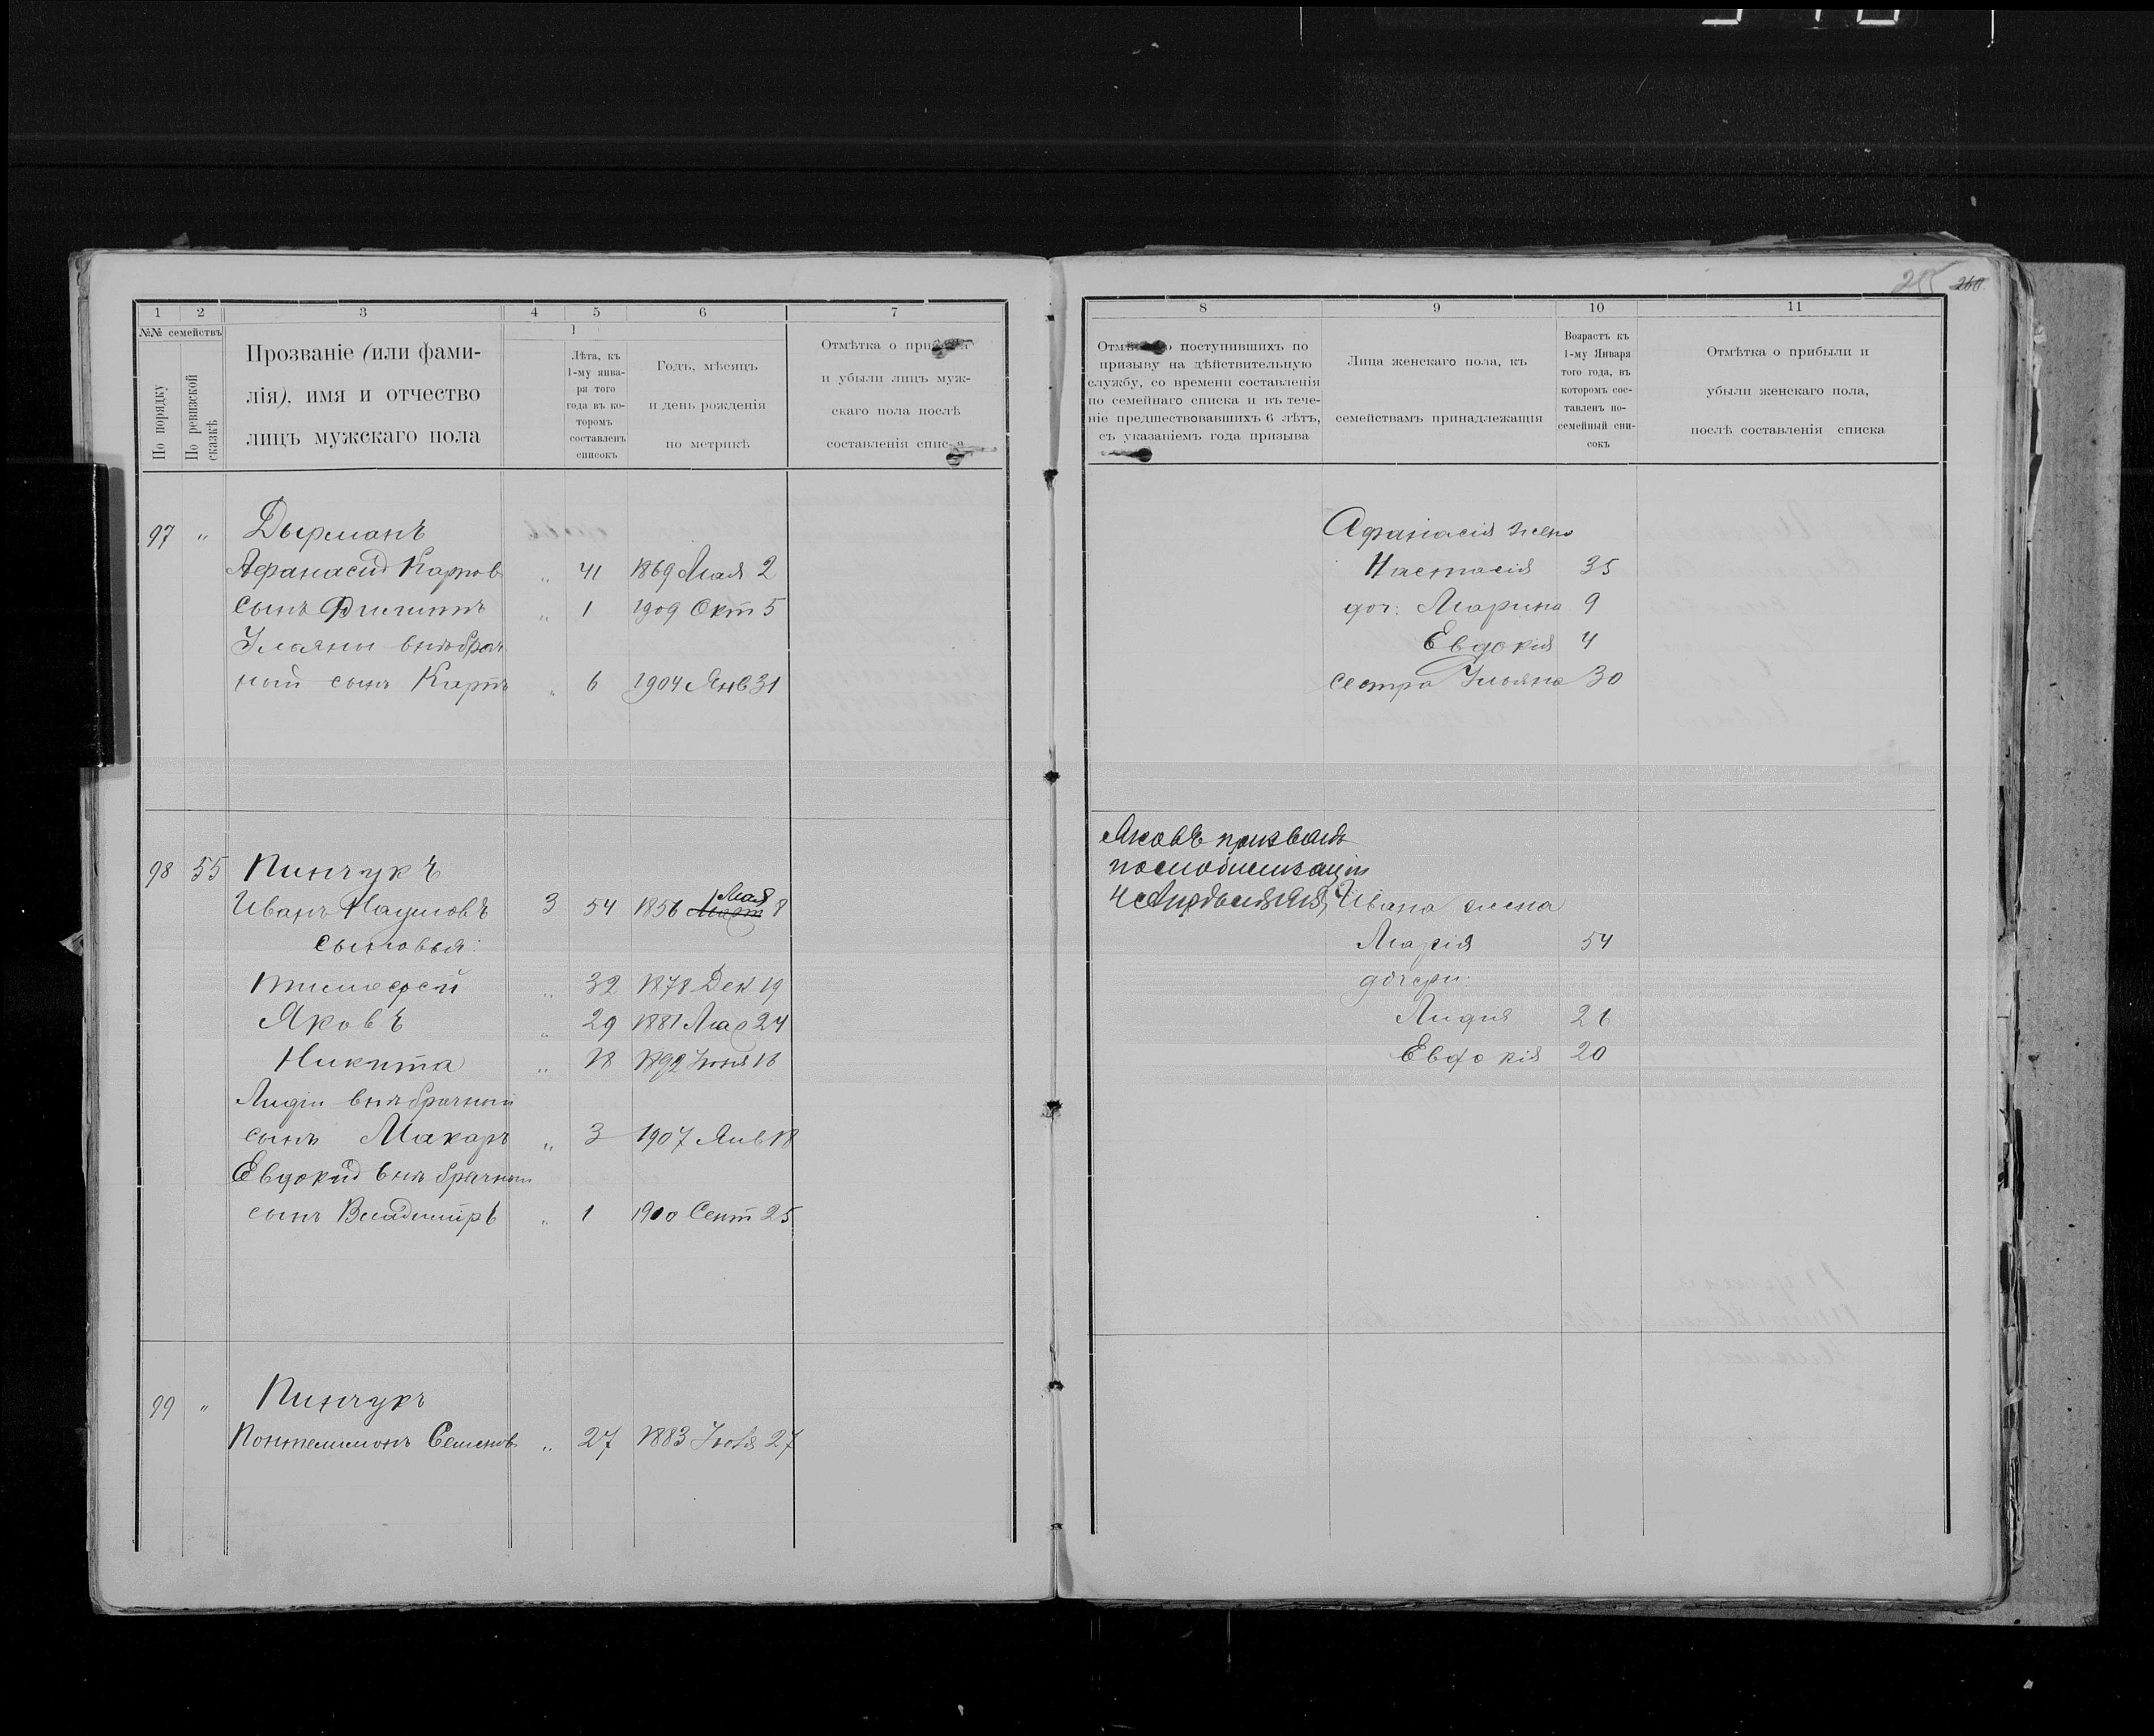 255 260
1 2 3 4 5 6 7
№№ семействъ
По порядку
По ревизской сказкѣ
Прозваніе (или фами-
лія), имя и отчество
лицъ мужскаго пола
Лѣта, къ
1-му янва-
ря того
года въ ко-
торомъ
составленъ
списокъ
Годъ, мѣсяцъ
и день рожденія
по метрикѣ
Отмѣтка о
и убыли лицъ муж-
скаго пола послѣ
составленія
97 " Дырманъ
Афанасій Карпов " 41 1869 Мая 2
сынъ Филиппъ " 1 1909 Окт 5
Ульяны внѣбрач
ный сынъ Карпъ " 6 1904 Янв 31
98 55 Пинчукъ
Иванъ Наумовъ 3 54 1856 Март Мая 8
сыновья:
Тимофей " 32 1878 Дек 19
Яковъ " 29 1881 Мар 24
Никита " 18 1892 Іюня 18
Лидіи внѣбрачный
сынъ Макаръ " 3 1907 Янв 18
Евдокіи внѣбрачный
сынъ Владиміръ " 1 1900 Сент 25
99 " Пинчукъ
Понтелимонъ Семеновъ " 27 1883 Іюля 27
8 9 10 11
поступившихъ по
призыву на дѣйствительную
службу, со времени составленія
по семейнаго списка и въ тече-
ніе предшествовавшихъ 6 лѣтъ,
съ указаніемъ года призыва
Лица женскаго пола, къ
семействамъ принадлежащія
Возрастъ къ
1-му Января
того года, въ
которомъ сос-
тавленъ по-
семейный спи-
сокъ
Отмѣтка о прибыли и
убыли женскаго пола,
послѣ составленія списка
Афанасія жена
Настасія 35
доч: Марина 9
Евдокія 4
сестра Ульяна 30
Яковъ призванъ
по мобилизаціи
Ивана жена
Марія 54
дочери
Лидія 21
Евдокія 20